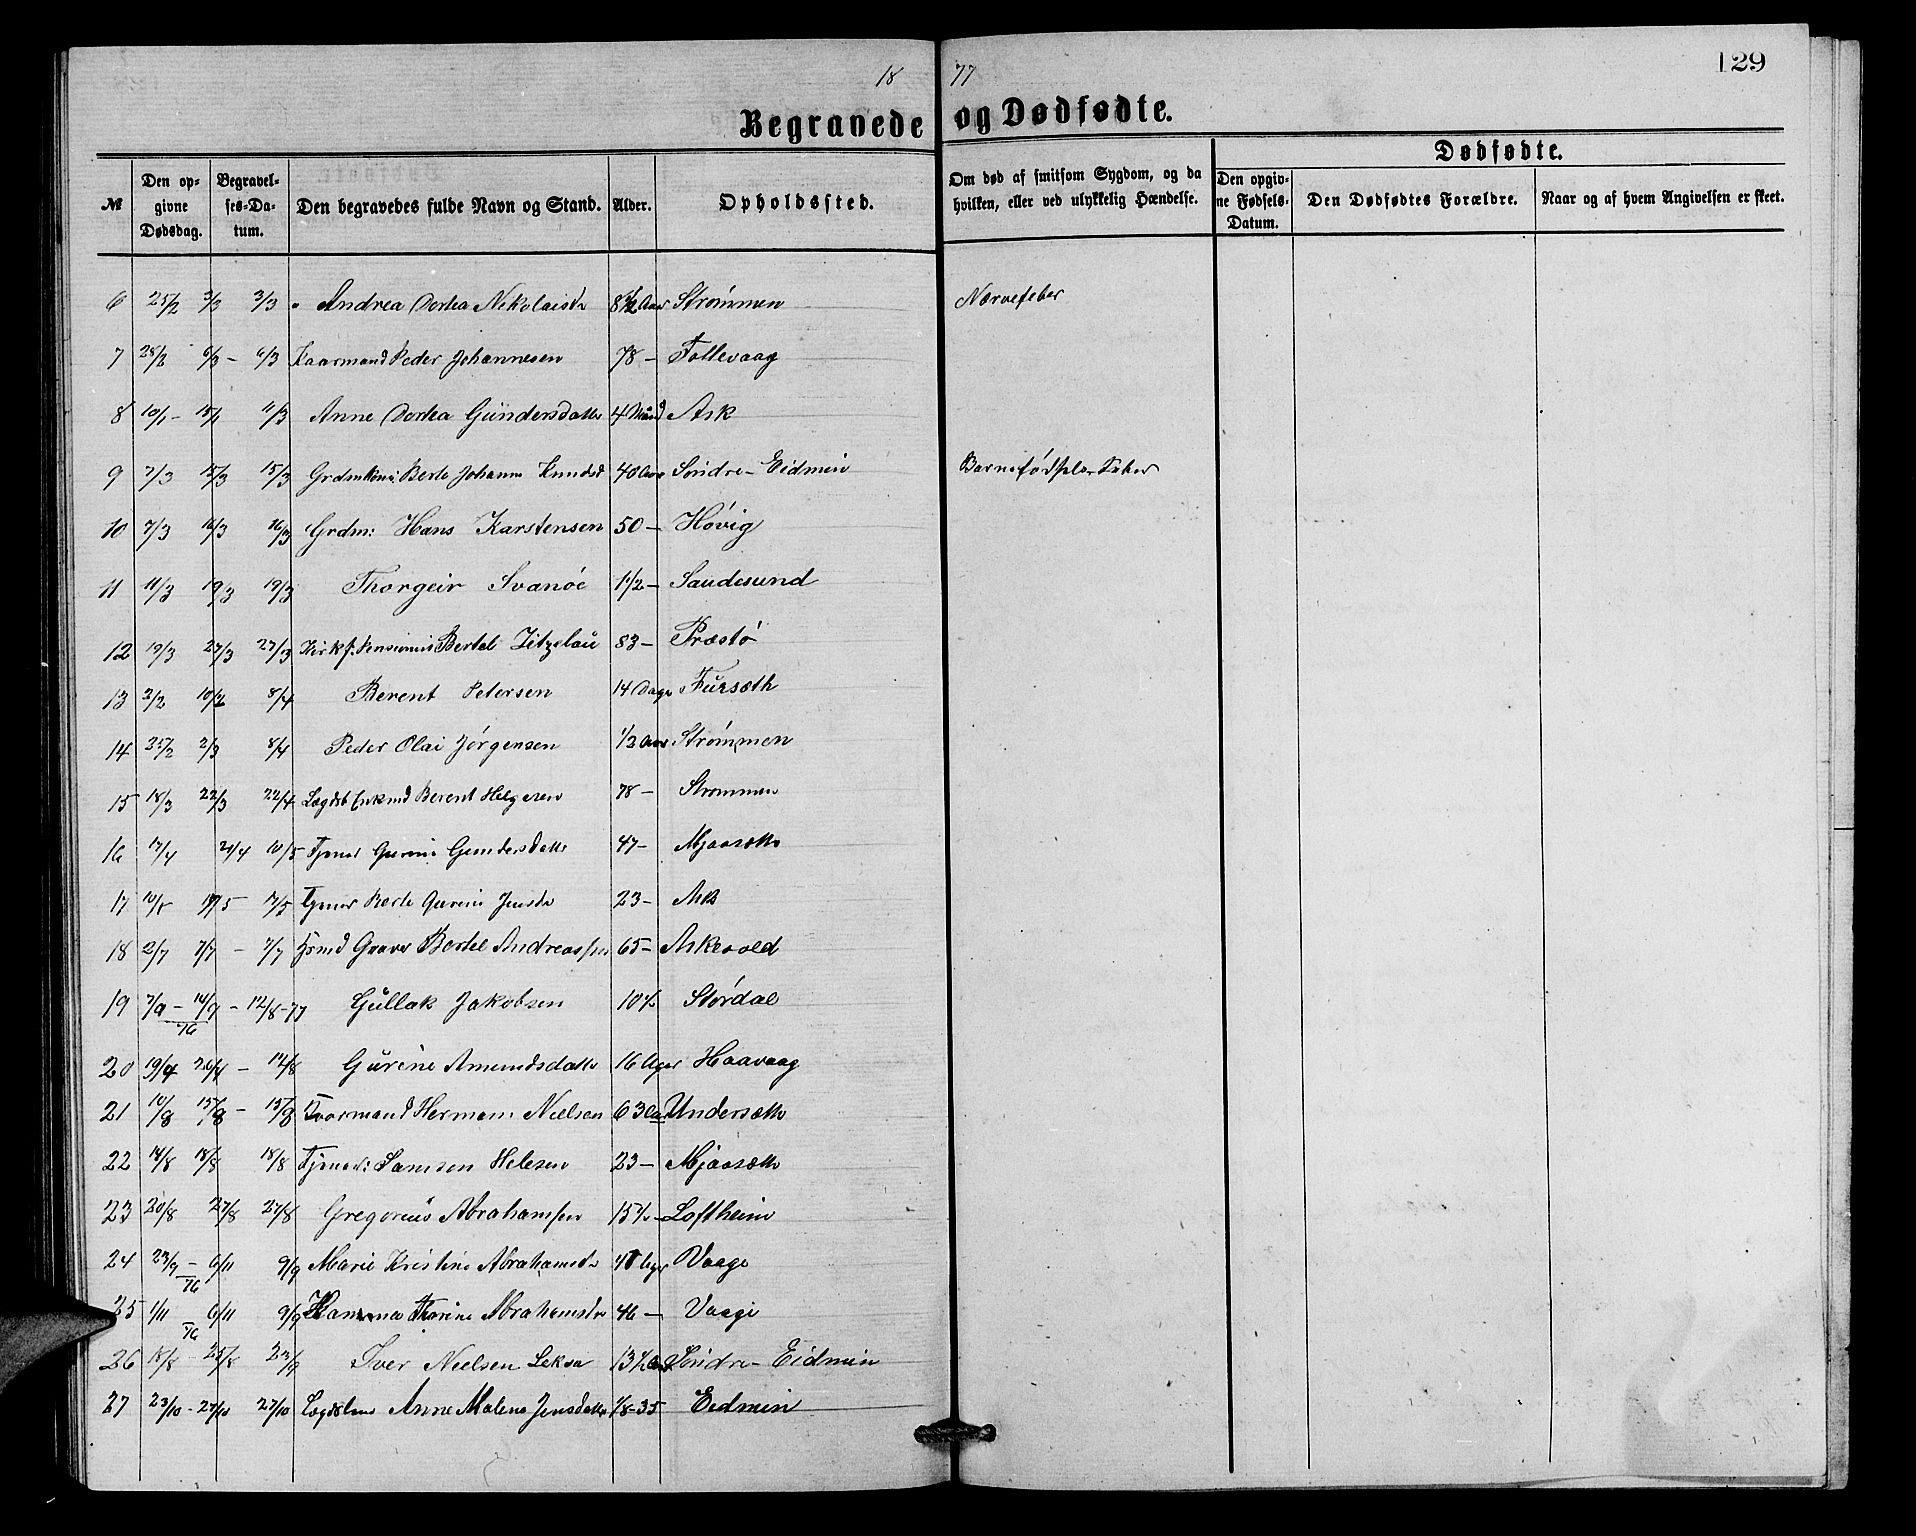 129
18 77
Begravede og Dødfødte.
№ Den opgivne Dødsdag. Begravelses-Datum. Den begravedes fulde Navn og Stand. Alder. Opholdssted. Om død af smitsom Sygdom, og da hvilken, eller ved ulykkelig Hændelse. Dødfødte.
Den opgivne Fødsels-Datum. Den Dødfødtes Forældre. Naar og af hvem Angivelsen er skeet.
6 25/2 3/3 3/3 Andrea Dortea Nikolaisdr 8 1/2 Aar Strømmen Nervefeber
7 28/2 6/3 – 6/3 Kaarmand Peder Johannesen 78 – Follevaag
8 10/1 – 15/1 11/3 Anne Dortea Gündersdatter 4 Maand Ask
9 7/3 15/3 15/3 Grdmkone: Berte Johanne Knudsd 40 Aar Søndre – Eidmin Barnefødsels Feber
10 7/3 16/3 16/3 Grdm: Hans Karstensen 50 – Høvig
11 11/3 19/3 19/3 Thorgeir Svanøe 1 1/2 – Saudesund
12 19/3 27/3 27/3 Bertel Zitzelau 83 – Præstø
13 2/2 10/2 8/4 Berent Petersen 14 Dage Fursæth
14 25/2 2/3 8/4 Peder Olai Jørgensen 1/2 Aar Strømmen
15 18/3 22/3 22/4 Lægdsl Enkmd Berent Helgesen 78 – Strømmen
16 17/4 21/4 10/5 Tjener Gurine Gundersdatter 47 – Mjaasæth
17 10/5 17/5 17/5 Tjener Berte Gurine Jensdr 23 – Ask
18 2/7 7/7 – 7/7 Graver Bertel Andreassen 65 – Askevold
19 7/9 – 14/9 76 – 12/8 – 77 Gullak Jakobsen 10 1/2 Størdal
20 19/4 26/4 – 12/8 Gürine Amundsdatter 16 Uger Haavaag
21 10/8 15/8 – 15/8 Herman Nielsen 63 Aar Undersæth
22 14/8 18/8 18/8 Tjener: Samson Helesen 23 – Mjaasæth
23 20/8 27/8 27/8 Gregorius Abrahamsen 15 1/2 – Loftheim
24 23/9 – 76 6/11 9/9 Marie Kristine Abrahamsdr Uger Vaage
25 1/11 76 6/11 9/9 Thorine Abrahamsdr 46 – Vaage
26 18/8 25/8 23/9 Iver Nielsen Leksa 13 1/2 Aar Søndre – Eidmin
27 23/10 – 27/10 27/10 Lægdslem Anne Malene Jensdatter 1/8 – 35 Eidmin